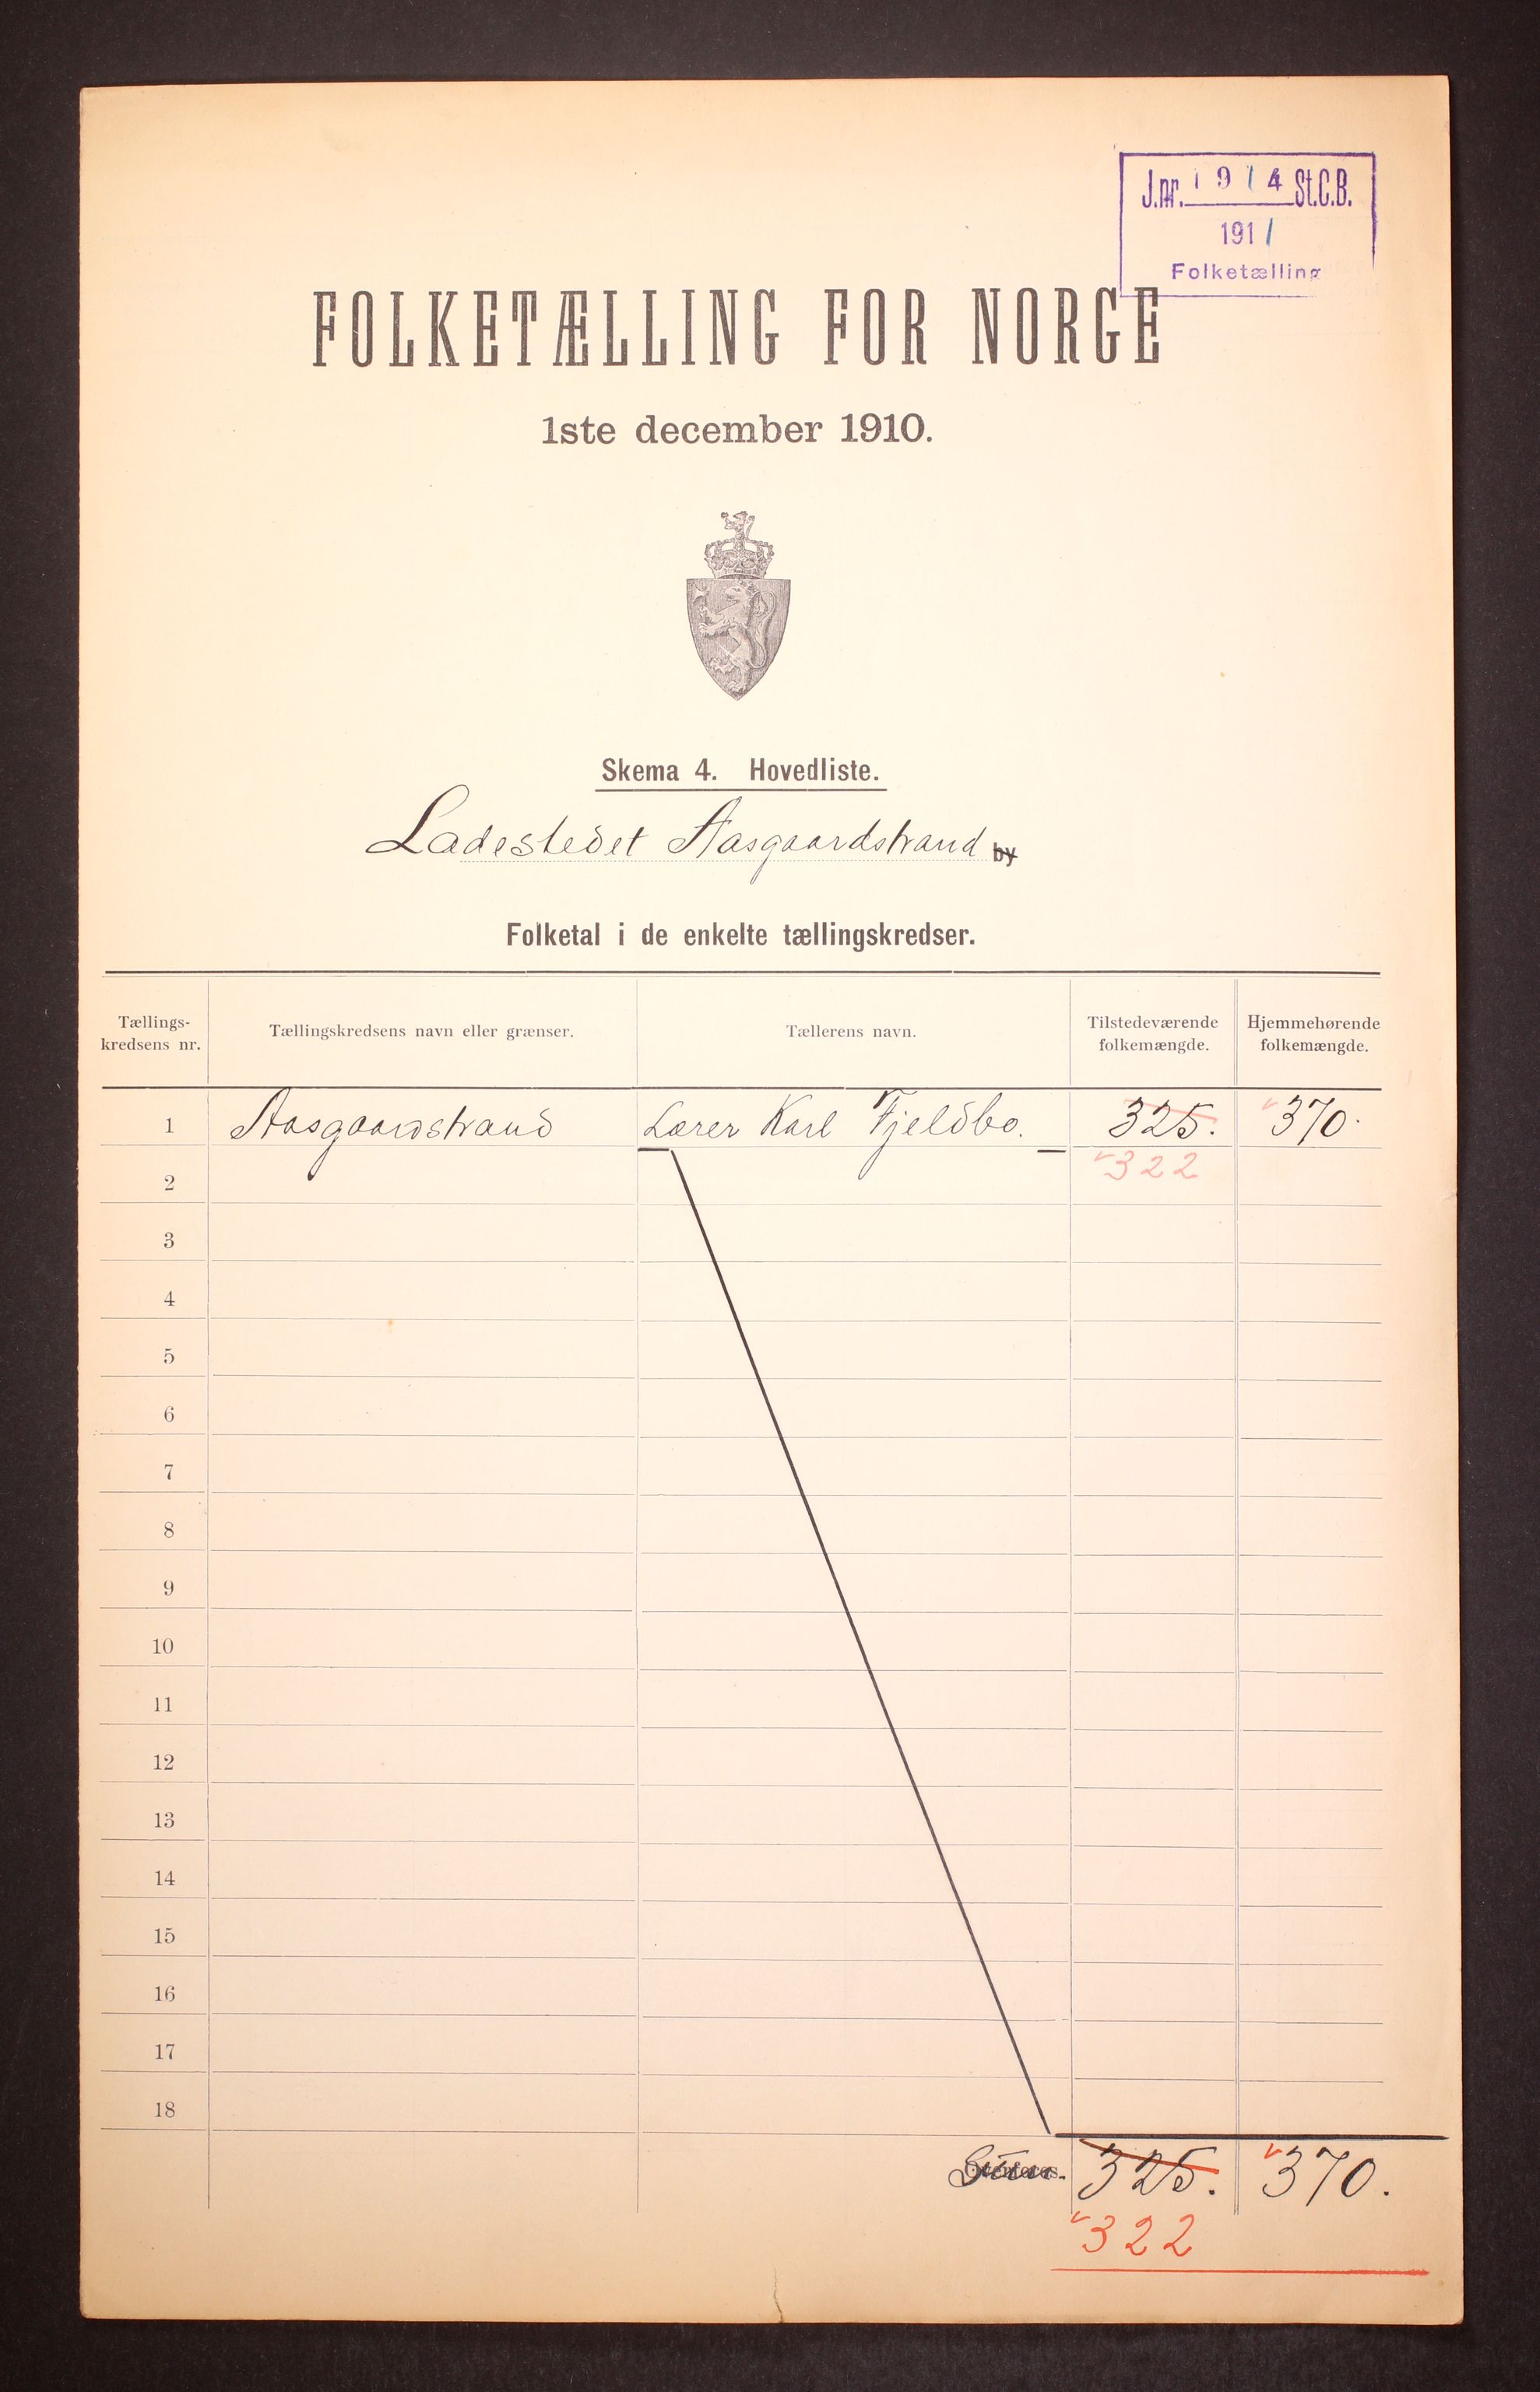 J.nr. 1914 St.C.B.
1911
Folketælling
FOLKETÆLLING FOR NORGE
1ste december 1910.
Skema 4. Hovedliste.
Ladestedet Aasgaardstrand by
Folketal i de enkelte tællingskredser.
Tællings-kredsens nr. Tællingskredsens navn eller grænser. Tællerens navn. Tilstedeværende folkemængde. Hjemmehørende folkemængde.
1 Aasgaardstrand Lærer Karl Fjeldbo. 325. 370.
2 322
3
4
5
6
7
8
9
10
11
12
13
14
15
16
17
18
Sum. 325. 370.
322